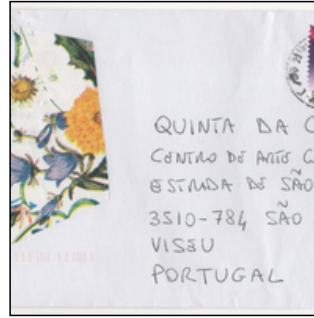 QUINTA DA C
CENTRO DE ARTE C
ESTRADA DE SÃO
3510-784 SÃO
VISEU
PORTUGAL